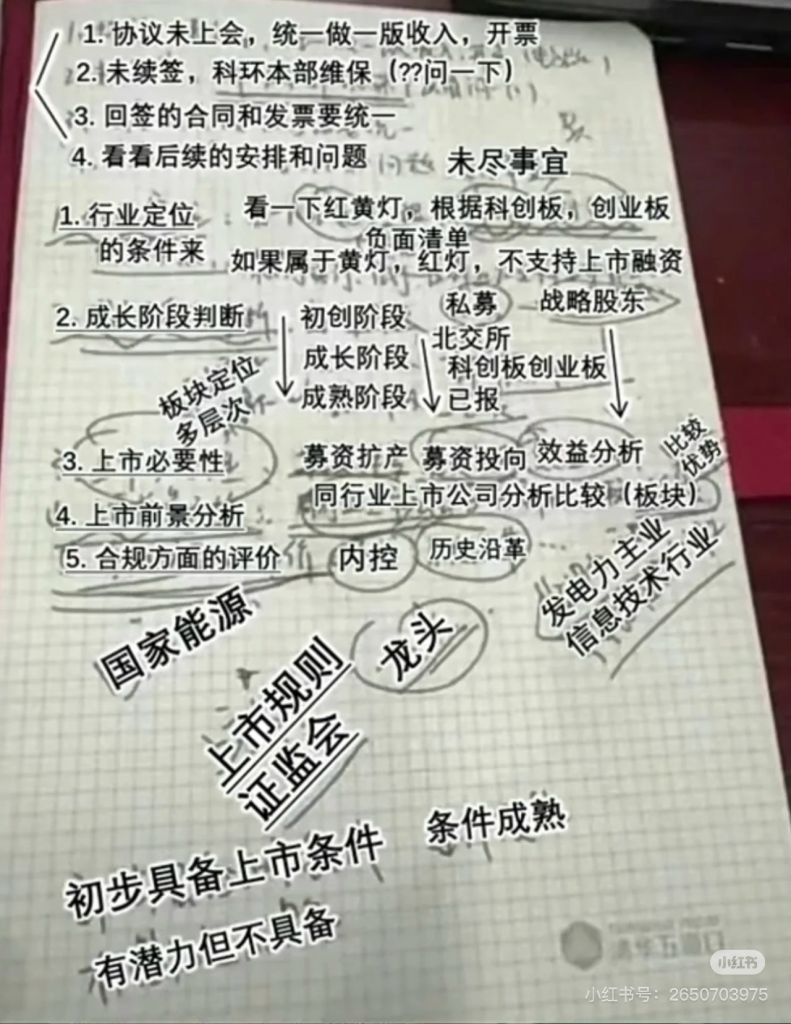 1. 协议未上会，统一做一版收入，开票
2. 未续签，科环本部维保（??问一下）
3. 回签的合同和发票要统一
4. 看看后续的安排和问题
未尽事宜
1. 行业定位的条件来
看一下红黄灯，根据科创板，创业板
负面清单
如果属于黄灯，红灯，不支持上市融资
2. 成长阶段判断
初创阶段
成长阶段
成熟阶段
私募
北交所
科创板创业板
已报
战略股东
板块定位
多层次
3. 上市必要性
募资扩产
募资投向
效益分析
比较
优势
4. 上市前景分析
同行业上市公司分析比较（板块）
5. 合规方面的评价
内控
历史沿革
发电力主业
信息技术行业
国家能源
龙头
上市规则
证监会
初步具备上市条件
条件成熟
有潜力但不具备
小红书
小红书号：2650703975